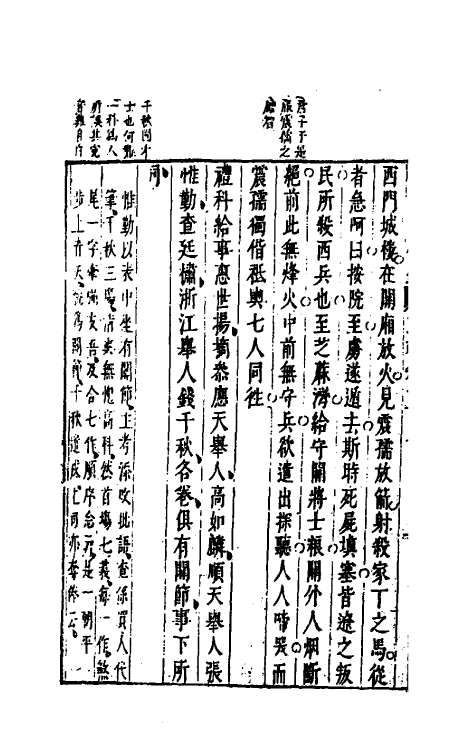 君子于是
服震孺之
膽智
西門城後在關廂放火見震孺放箭射殺家丁之馬從
者急呵曰按院至虜遂遁去斯時死屍填塞皆遼之叛
民所殺西兵也至芝蔴灣給守關將士粮關外人烟斷
絕前此無烽火中前無守兵欲遣出探聽人人啼哭而
震孺獨偕祖輿七人同往
禮科給事惠世揚摘叅應天舉人高如麟順天舉人張
惟勤查廷橚浙江舉人錢千秋各卷俱有關節事下所
司
千秋固才
士也何
一科為人
惟勤以表中坐有關節主考添改批語查係買人代
筆千秋三場清美無愧高科然首場七義每一作煞
尾一字牽強支吾及合七作順序念完是一朝平
步上青天完為關節千秋遣戍上司亦奪俸云